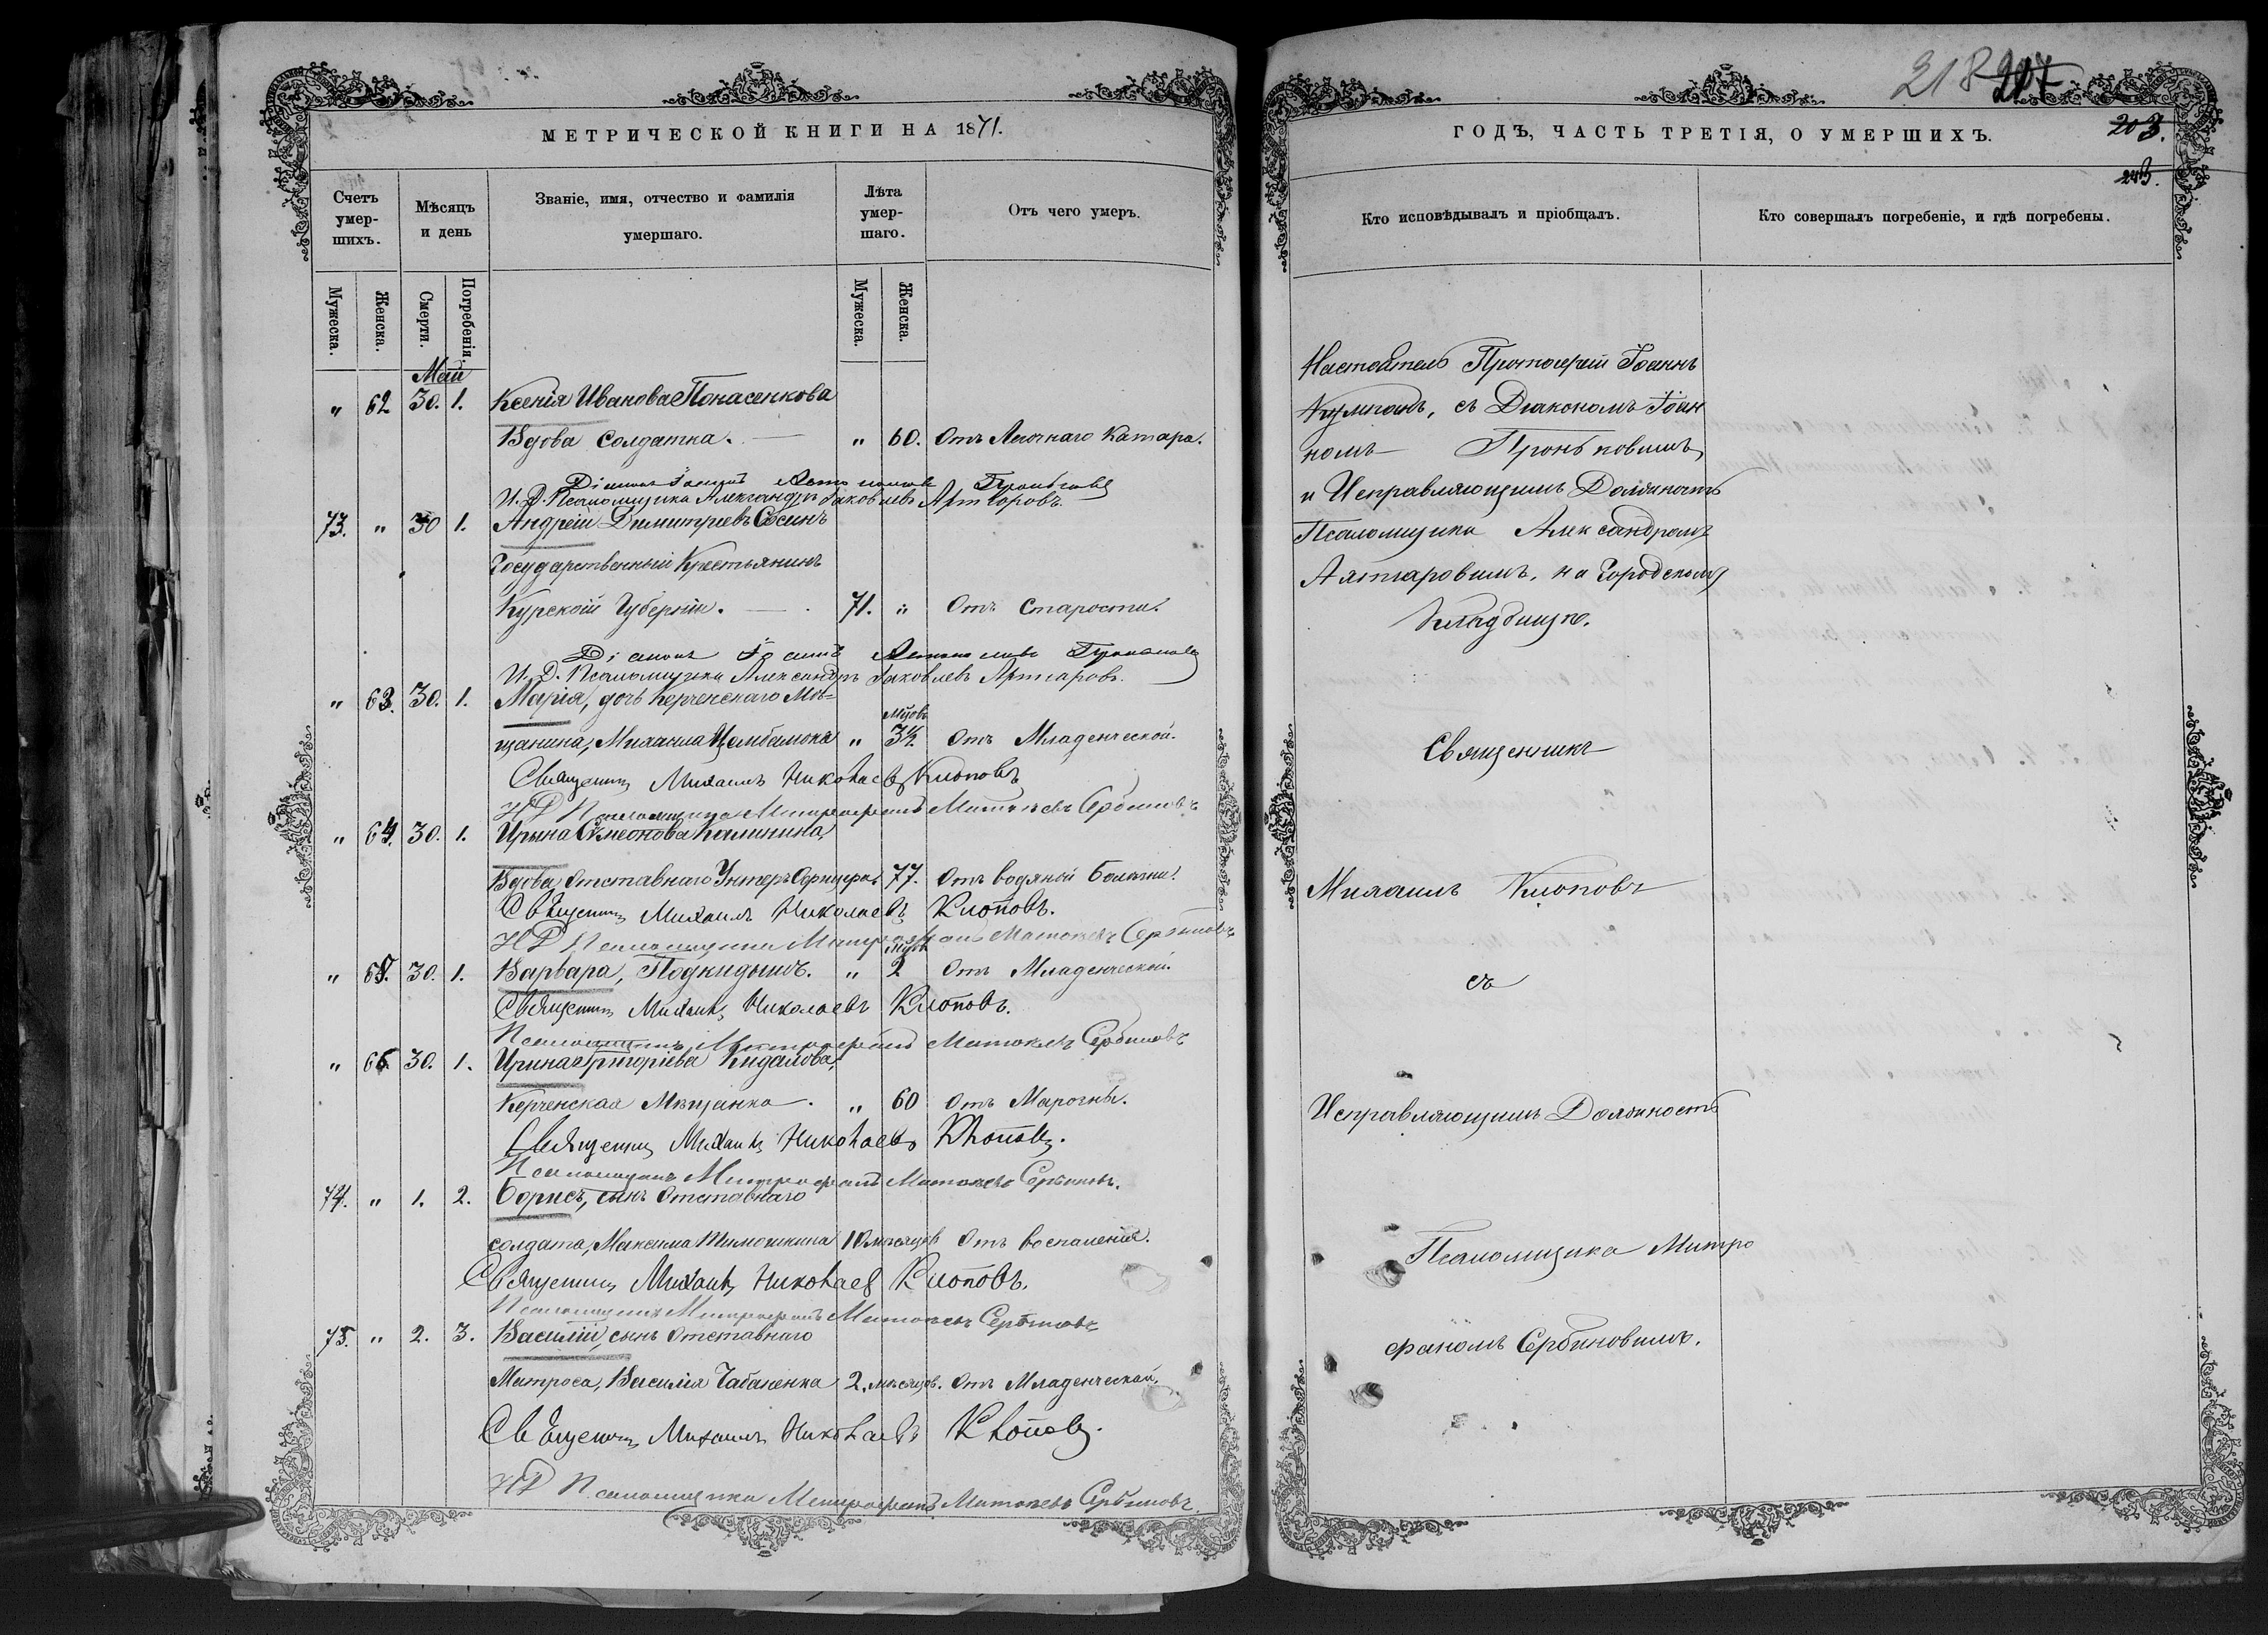 МЕТРИЧЕСКОЙ КНИГИ НА 1871.
Счетъ умер-шихъ.
Мѣсяцъ и день
Званіе, имя, отчество и фамилія умершаго.
Лѣта умер-шаго.
Отъ чего умеръ.
Мужеска. Женска. Смерти. Погребенія. Мужеска. Женска.
Май
" 62 30. 1. Ксенія Иванова Понасенкова
Вдова солдатка. — " 60. Отъ Легочнаго Катара.
И. Д. Псаломщика Александръ Яковлевъ
73. " 30 1. Андрей Димитріевъ Сосинъ
Государственный Крестьянинъ
Курской Губерніи. — 71. " Отъ Старости.
И. Д. Псаломщика Александръ Яковлевъ
" 63. 30. 1. Марія, дочь Керченскаго Мѣ-
щанина, Михаила " 3½ Отъ Младенческой.
Священникъ Михаилъ Николаевъ Клоповъ
ИД Псаломщика Митрофанъ Сербиновъ
" 64. 30. 1. Ирина Симеонова Калинина,
Вдова Отставнаго Унтеръ Офицера. 77. Отъ водяной болѣзни.
Священникъ Михаилъ Николаевъ Клоповъ.
ИД Псаломщика Митрофанъ Сербиновъ
" 65. 30. 1. Варвара, Подкидышъ. " 2 Отъ Младенческой.
Священникъ Михаилъ Николаевъ Клоповъ.
Псаломщикъ Митрофанъ Сербиновъ
" 66. 30. 1. Ирина Григоріева Кидалова,
Керченская Мѣщанка. " 60 Отъ
Священникъ Михаилъ Николаевъ Клоповъ.
Псаломщикъ Митрофанъ Сербиновъ.
74. " 1. 2. Борисъ, сынъ Отставнаго
солдата, Максима Тимошкина 10 мѣсяцовъ Отъ воспаленія.
Священникъ Михаилъ Николаевъ Клоповъ.
Псаломщикъ Митрофанъ Сербиновъ
75. " 2. 3. Василій, сынъ Отставнаго
Матроса, Василія Чабаненка 2. мѣсяцов. Отъ Младенческой.
Священникъ Михаилъ Николаевъ Клоповъ.
ИД Псаломщика Митрофанъ Сербиновъ
218 207
203.
ГОДЪ, ЧАСТЬ ТРЕТІЯ, О УМЕРШИХЪ.
Кто исповѣдывалъ и пріобщалъ.
Кто совершалъ погребеніе, и гдѣ погребены.
Настоятель Протоіерей Іоаннъ
съ Діакономъ Іоан
номъ
и Исправляющимъ Должность
Псаломщика Александромъ
на Городскомъ
Кладбищѣ.
Священникъ
Михаилъ Клоповъ
съ
Исправляющимъ Должность
Псаломщика Митро
фаномъ Сербиновымъ.